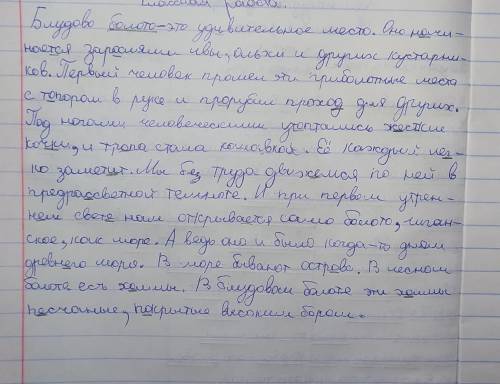 Классная работа.
Блудово болото-это удивительное место. Оно начи-
нается зарослями ивы, ольхи и других кустарни-
ков. Первый человек прошел эти приболотные места
с топором в руке и прорубил проход для других.
Под ногами человеческими утоптались жесткие
кочки, и тропа стала канавкой. Её каждый лег-
ко заметит. Мы без труда движемся по ней в
предрассветной темноте. И при первом утрен-
нем свете нам открывается само болото,
ское, как море. А ведь оно и было когда-то дном
древнего моря. В море бывают острова. В лесном
болота есть холмы. В блудовом болоте эти холмы
песчаные, покрытые высоким бором.